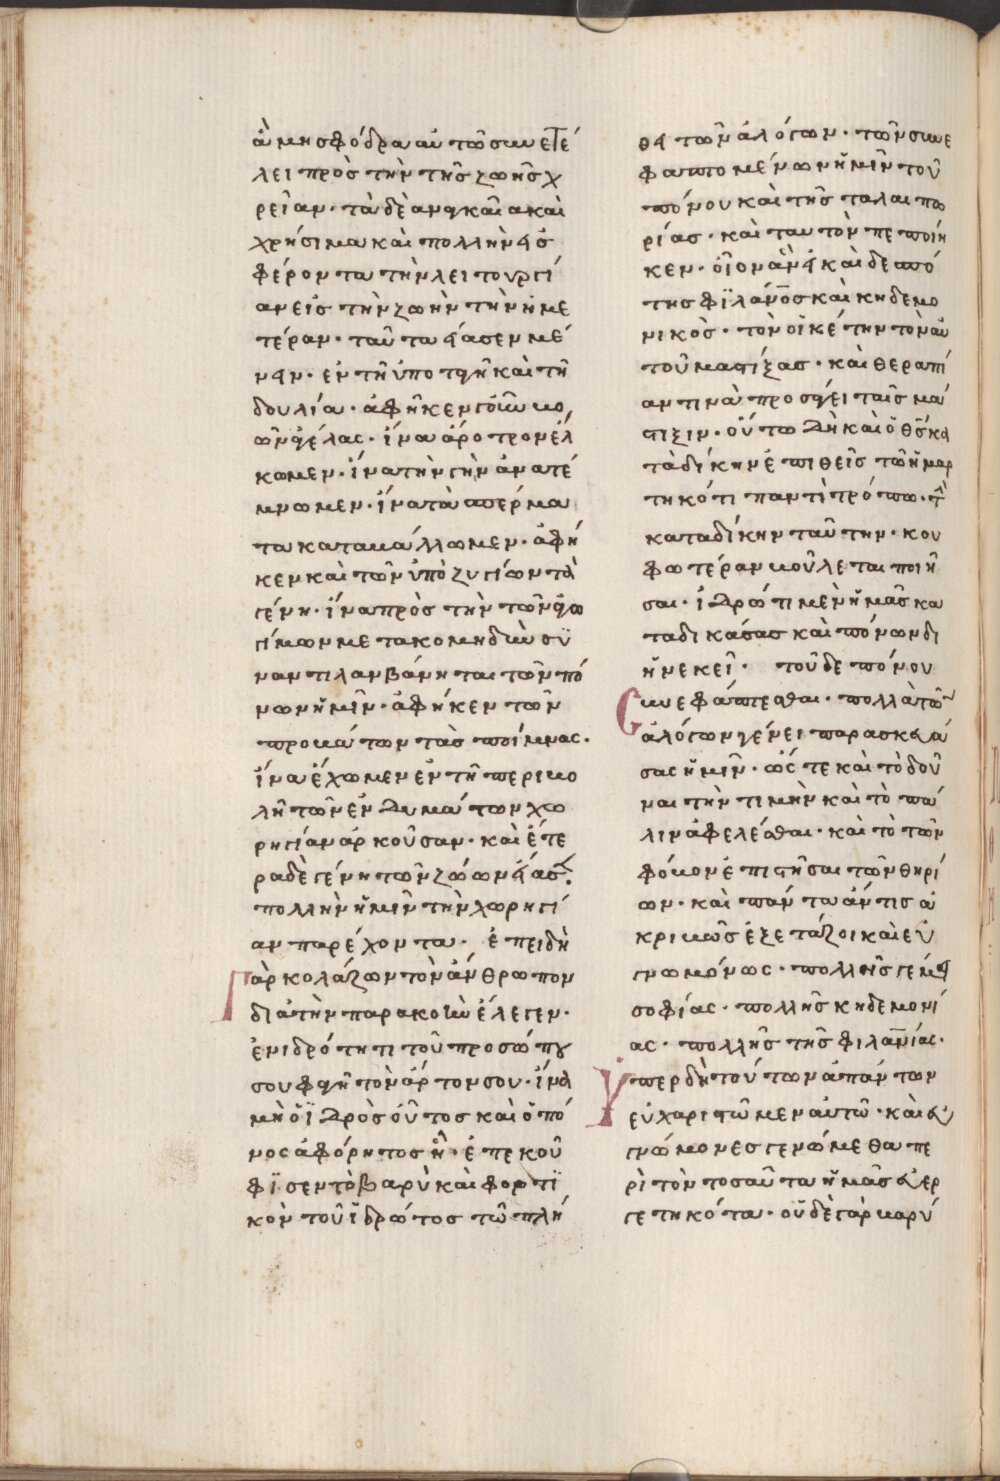 ἃ μὴ σφόδρα αὐτῶ συνετέ
λει πρὸς τὴν τῆς ζωῆς χ
ρείαν· τὰ δὲ ἀναγκαῖα καὶ
χρήσιμα καὶ πολλὴν εἰσ
φέροντα τὴν λειτουργί
αν εἰς τὴν ζωὴν τὴν ἡμε
τέραν· ταῦτα εἴασεν μέ
νειν· ἐν τῆ ὑποταγῆ καὶ τῆ
δουλία· ἀφῆκεν γοῦν βο
ῶν ἀγέλας· ἵνα ἄροτρον ἕλ
κωμεν· ἵνα τὴν γῆν ἀνατέ
μνωμεν· ἵνα τὰ σπέρμα
τα καταβάλλωμεν· ἀφῆ
κεν καὶ τῶν ὑποζυγίων τὰ
γένη· ἵνα πρὸς τὴν τῶν ἀγω
γίμων μετακομηδὴν συ
ναντιλαμβάνηται τῶν πό
νων ἡμῖν· ἀφῆκεν τῶν
προβάτων τὰς ποίμνας·
ἵνα ἔχωμεν ἐν τῆ περιβο
λῆ τῶν ἐνδυμάτων χω
ρηγίαν ἀρκοῦσαν· καὶ ἕτε
ρα δὲ γένη τῶν ζώων εἴασε·
πολλὴν ἡμῖν τὴν χωρηγί
αν παρέχοντα· ἐπειδὴ
γὰρ κολάζων τὸν ἄνθρωπον
διὰ τὴν παρακοὴν ἔλεγεν·
ἐν ἱδρότητι τοῦ προσώπου
σου φαγῆ τὸν ἄρτον σου· ἵνα
μὴ ὁ ἱδρὸς οὗτος καὶ ὁ πό
νος ἀφόρητος ἦ· ἐπεκού
φισεν τὸ βαρὺ καὶ φορτι
κὸν τοῦ ἱδρῶτος τῶ πλή
θει τῶν ἀλόγων· τῶν συνε
φαπτομένων ἡμῖν τοῦ
πόνου καὶ τῆς ταλαιπω
ρίας· καὶ ταυτὸν πεποίη
κεν· οἷον ἂν εἰ καὶ δεσπό
της φιλάν̅ος καὶ κηδεμο
νικὸς· τὸν οἰκέτην τὸν αὐ
τοῦ μαστίξας· καὶ θεραπί
αν τινὰ προσάγει ταῖς μά
στιξιν· οὕτω δὴ καὶ ὁ θ̅ς κα
ταδίκην ἐπιθεὶς τῶ ἡμαρ
τηκότι παντὶ τρόπω· τὴν
καταδίκην ταύτην· κου
φωτέραν βούλεται ποιῆ
σαι· ἱδρώτι μὲν ἡμᾶς κα
ταδικάσας καὶ πόνων δι
ηνεκεῖ· τοῦ δε πόνου
συνεφάπτεσθαι· πολλὰ τῶν
ἀλόγων γένει παρασκευά
σας ἡμῖν· ὥς τε καὶ τὸ δοῦ
ναι τὴν τιμὴν καὶ τὸ πά
λιν ἀφελέσθαι· καὶ τὸ τῶν
φόβον ἐπιστῆσαι τῶν θηρί
ων· καὶ πάντα ἄν τις ἀ
κριβῶς ἐξετάζοι καὶ εὐ
γνωμόνως· πολλῆς γέμει
σοφίας· πολλῆς κηδεμονί
ας· πολλῆς τῆς φιλαν̅ίας·
Ὑπερ δὴ τούτων ἁπάντων
εὐχαριστῶμεν αὐτῶ· καὶ εὐ
γνώμονες γενώμεθα πε
ρὶ τὸν τοσαῦτα ἡμᾶς εὐερ
γετηκότα· οὐδὲ γὰρ βαρύ